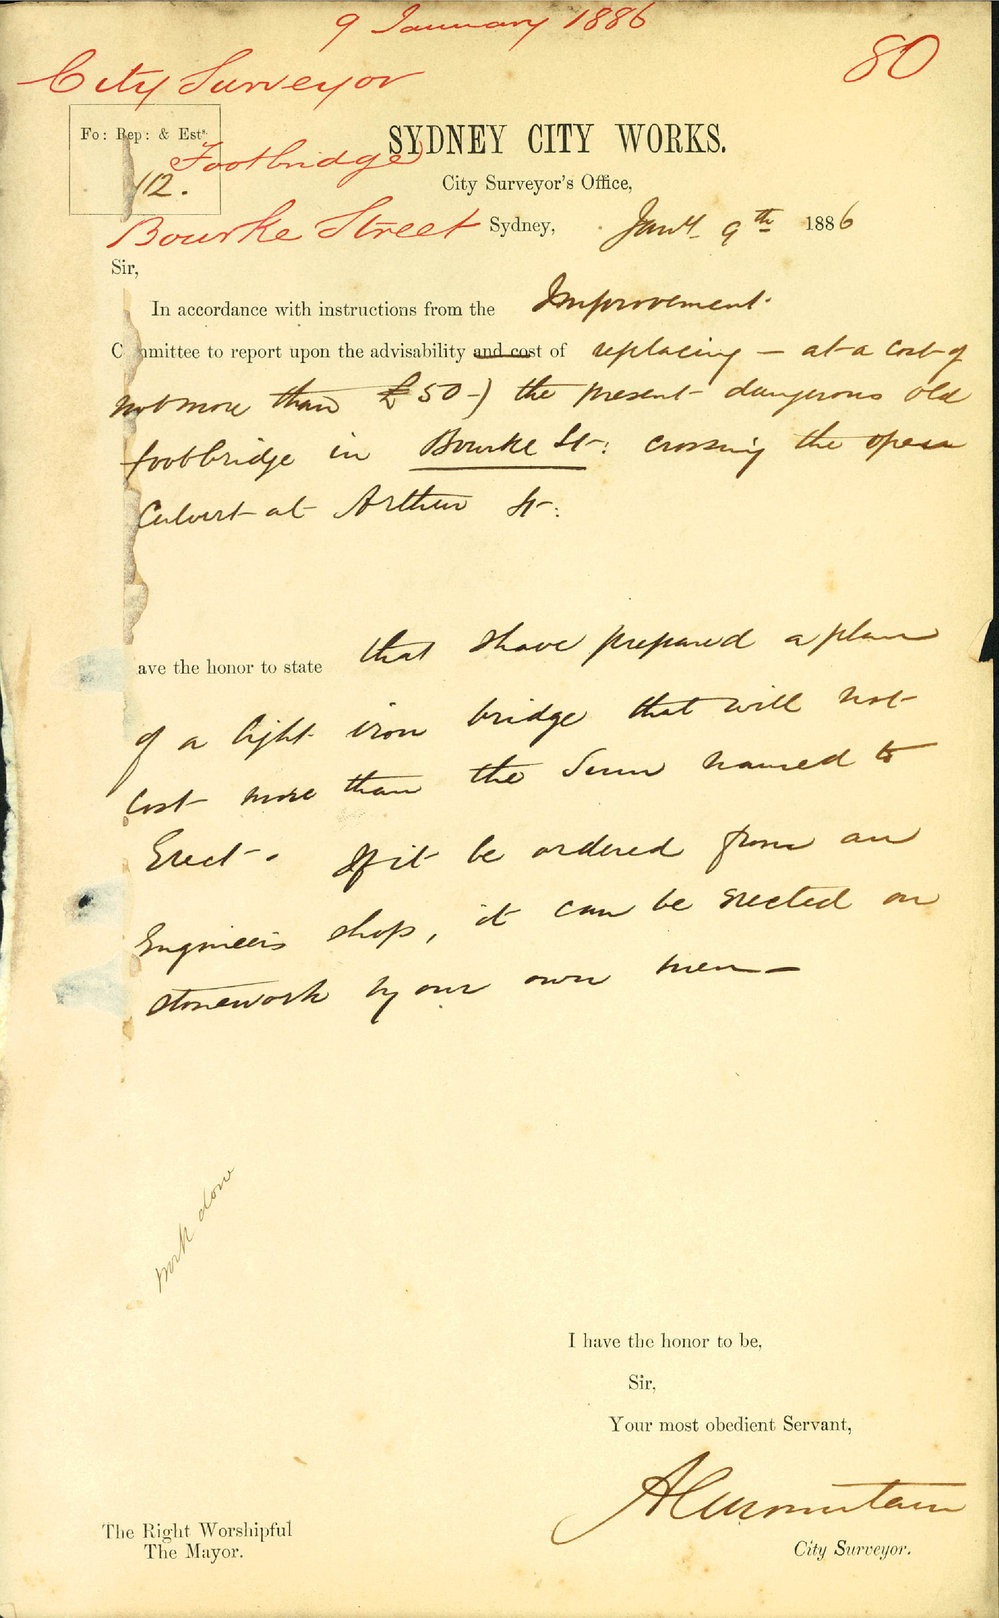 9 January 1886
80
City Surveyor
Fo: Rep: & Ests.
Footbridge
112.
SYDNEY CITY WORKS.
City Surveyor's Office,
Bourke Street
Sydney, Jany. 9th 1886
Sir,
In accordance with instructions from the Improvement
C mmittee to report upon the advisability and cost of replacing – at a cost of
not more than £50 –) the present dangerous old
footbridge in Bourke St: crossing the open
Culvert at Arthur St:
ave the honor to state that I have prepared a plan
of a light iron bridge that will not
cost more than the sum named to
Erect. If it be ordered from an
Engineers shop, it can be erected on
stonework by our own men –
work done
I have the honor to be,
Sir,
Your most obedient Servant,
A C Mountain
City Surveyor.
The Right Worshipful
The Mayor.